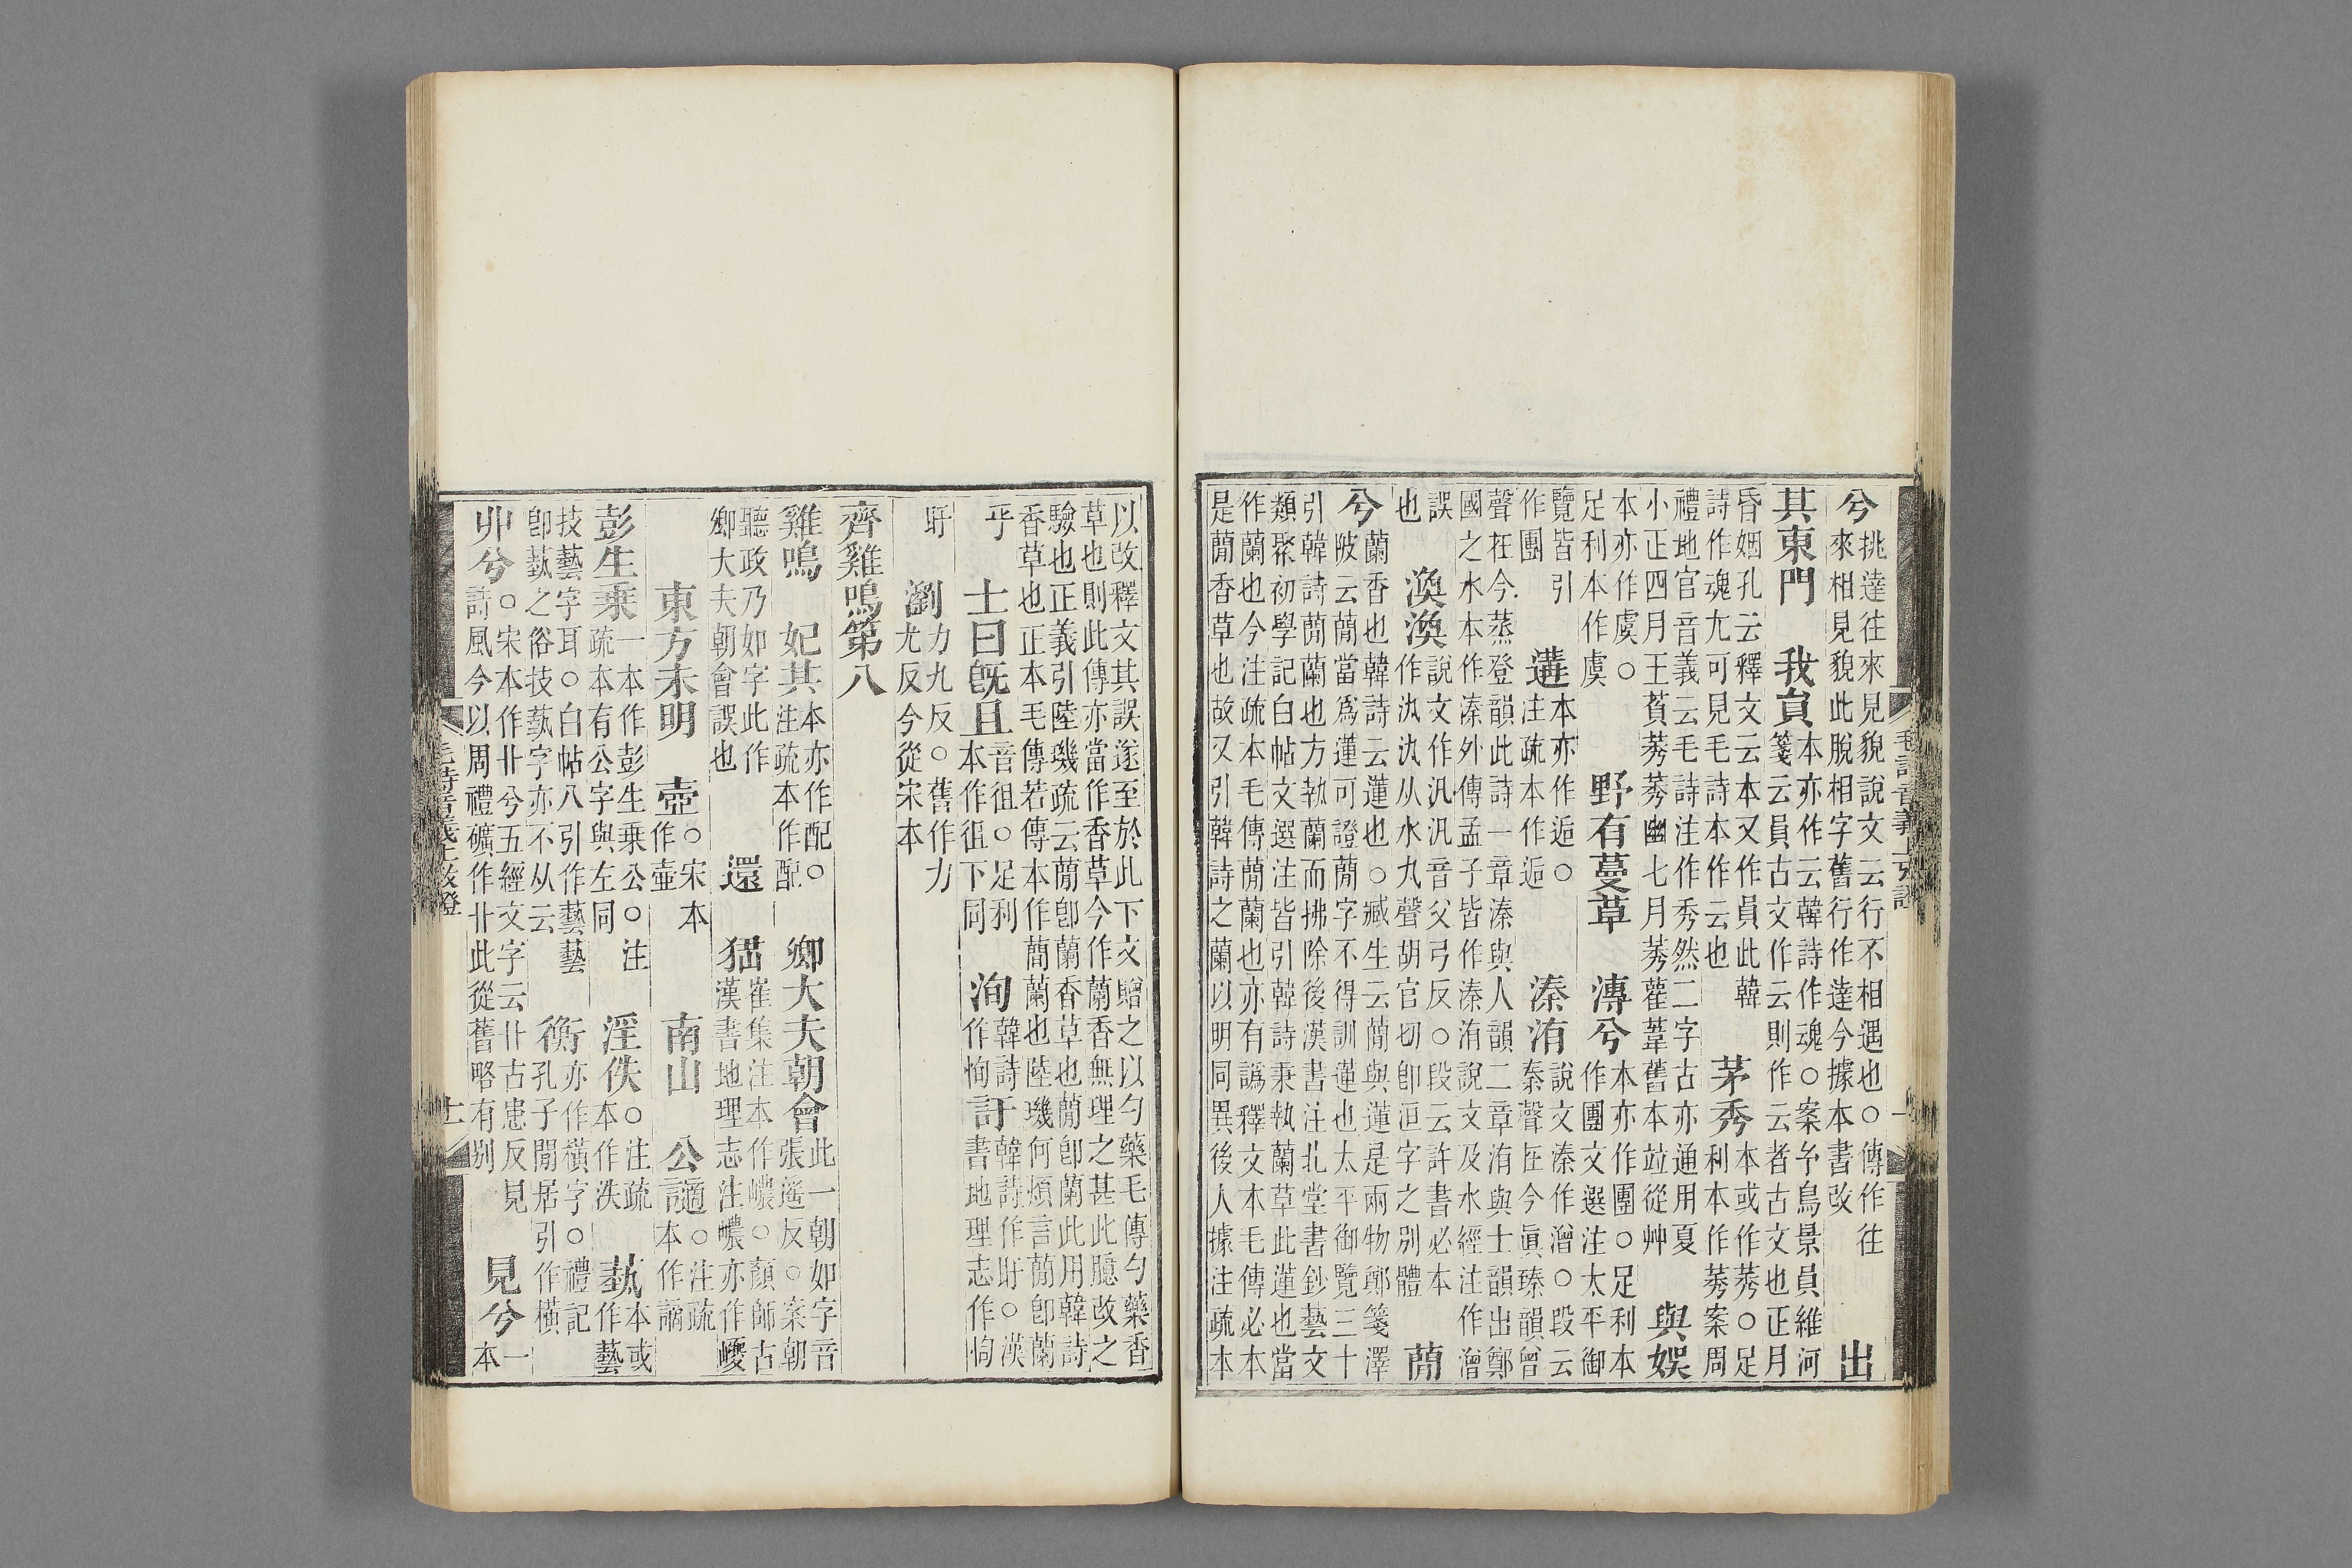 兮挑達往來見貌說文云行不相遇也○傳作往
來相見貌此脫相字舊行作達今據本書改 出
其東門 我員本亦作云韓詩作魂○案今鳥景員維河
箋云員古文作云則作云者古文也正月
昏姻孔云釋文云本又作員此韓
詩作魂尤可見毛詩本作云也 茅秀本或作莠○足
利本作莠案周
禮地官音義云毛詩注作秀然二字古亦通用夏
小正四月王萯莠莠幽七月莠雚葦舊本竝從艸 與娛
本亦作虞○
足利本作虞 野有蔓草 漙兮本亦作團○足利本
作團文選注太平御
覽皆引
作團 遘本亦作逅○
注疏本作逅 溱洧說文溱作潧○段云
秦聲在今眞臻韻曾
聲在今蒸登韻此詩一章溱與人韻二章洧與士韻出鄭
國之水本作溱外傳孟子皆作溱洧說文及水經注作潧
誤
也 渙渙說文作汎汎音父弓反○段云許書必本
作汍汍从水丸聲胡官切卽洹字之別體 蕳
兮蘭香也韓詩云蓮也○臧生云蕳與蓮是兩物鄭箋澤
陂云蕳當爲蓮可證蕳字不得訓蓮也太平御覽三十
引韓詩蕳蘭也方執蘭而拂除後漢書注北堂書鈔藝文
類聚初學記白帖文選注皆引韓詩秉執蘭草此蓮也當
作蘭也今注疏本毛傳蕳蘭也亦有譌釋文本毛傳必本
是蕳香草也故又引韓詩之蘭以明同異後人據注疏本
以改釋文其誤遂至於此下文贈之以勺藥毛傳勺藥香
草也則此傳亦當作香草今作蘭香無理之甚此臆改之
驗也正義引陸璣疏云蕳卽蘭香草也蕳卽蘭此用韓詩
香草也正本毛傳若傳本作蕳蘭也陸璣何煩言蕳卽蘭
乎 士曰旣且音徂○足利
本作徂下同 洵韓詩
作恂 訏韓詩作盱○漢
書地理志作恂
盱 瀏力九反○舊作力
尤反今從宋本
齊雞鳴第八
雞鳴 妃其本亦作配○
注疏本作配 卿大夫朝會此一朝如字音
張遙反○案朝
聽政乃如字此作
卿大夫朝會誤也 還 猱崔集注本作巎○顏師古
漢書地理志注巎亦作巙
東方未明 壺○宋本
作壷 南山 公謫○注疏
本作謫
彭生乘一本作彭生乘公○注
疏本有公字與左同 淫佚○注疏
本作泆 蓺本或
作藝
技藝字耳○白帖八引作藝藝
卽蓺之俗技蓺字亦不从云 衡亦作橫字○禮記
孔子閒居引作橫
丱兮○宋本作卝兮五經文字云卝古患反見
詩風今以周禮礦作卝此從舊略有別 見兮一
本
毛詩音義上攷證
十一